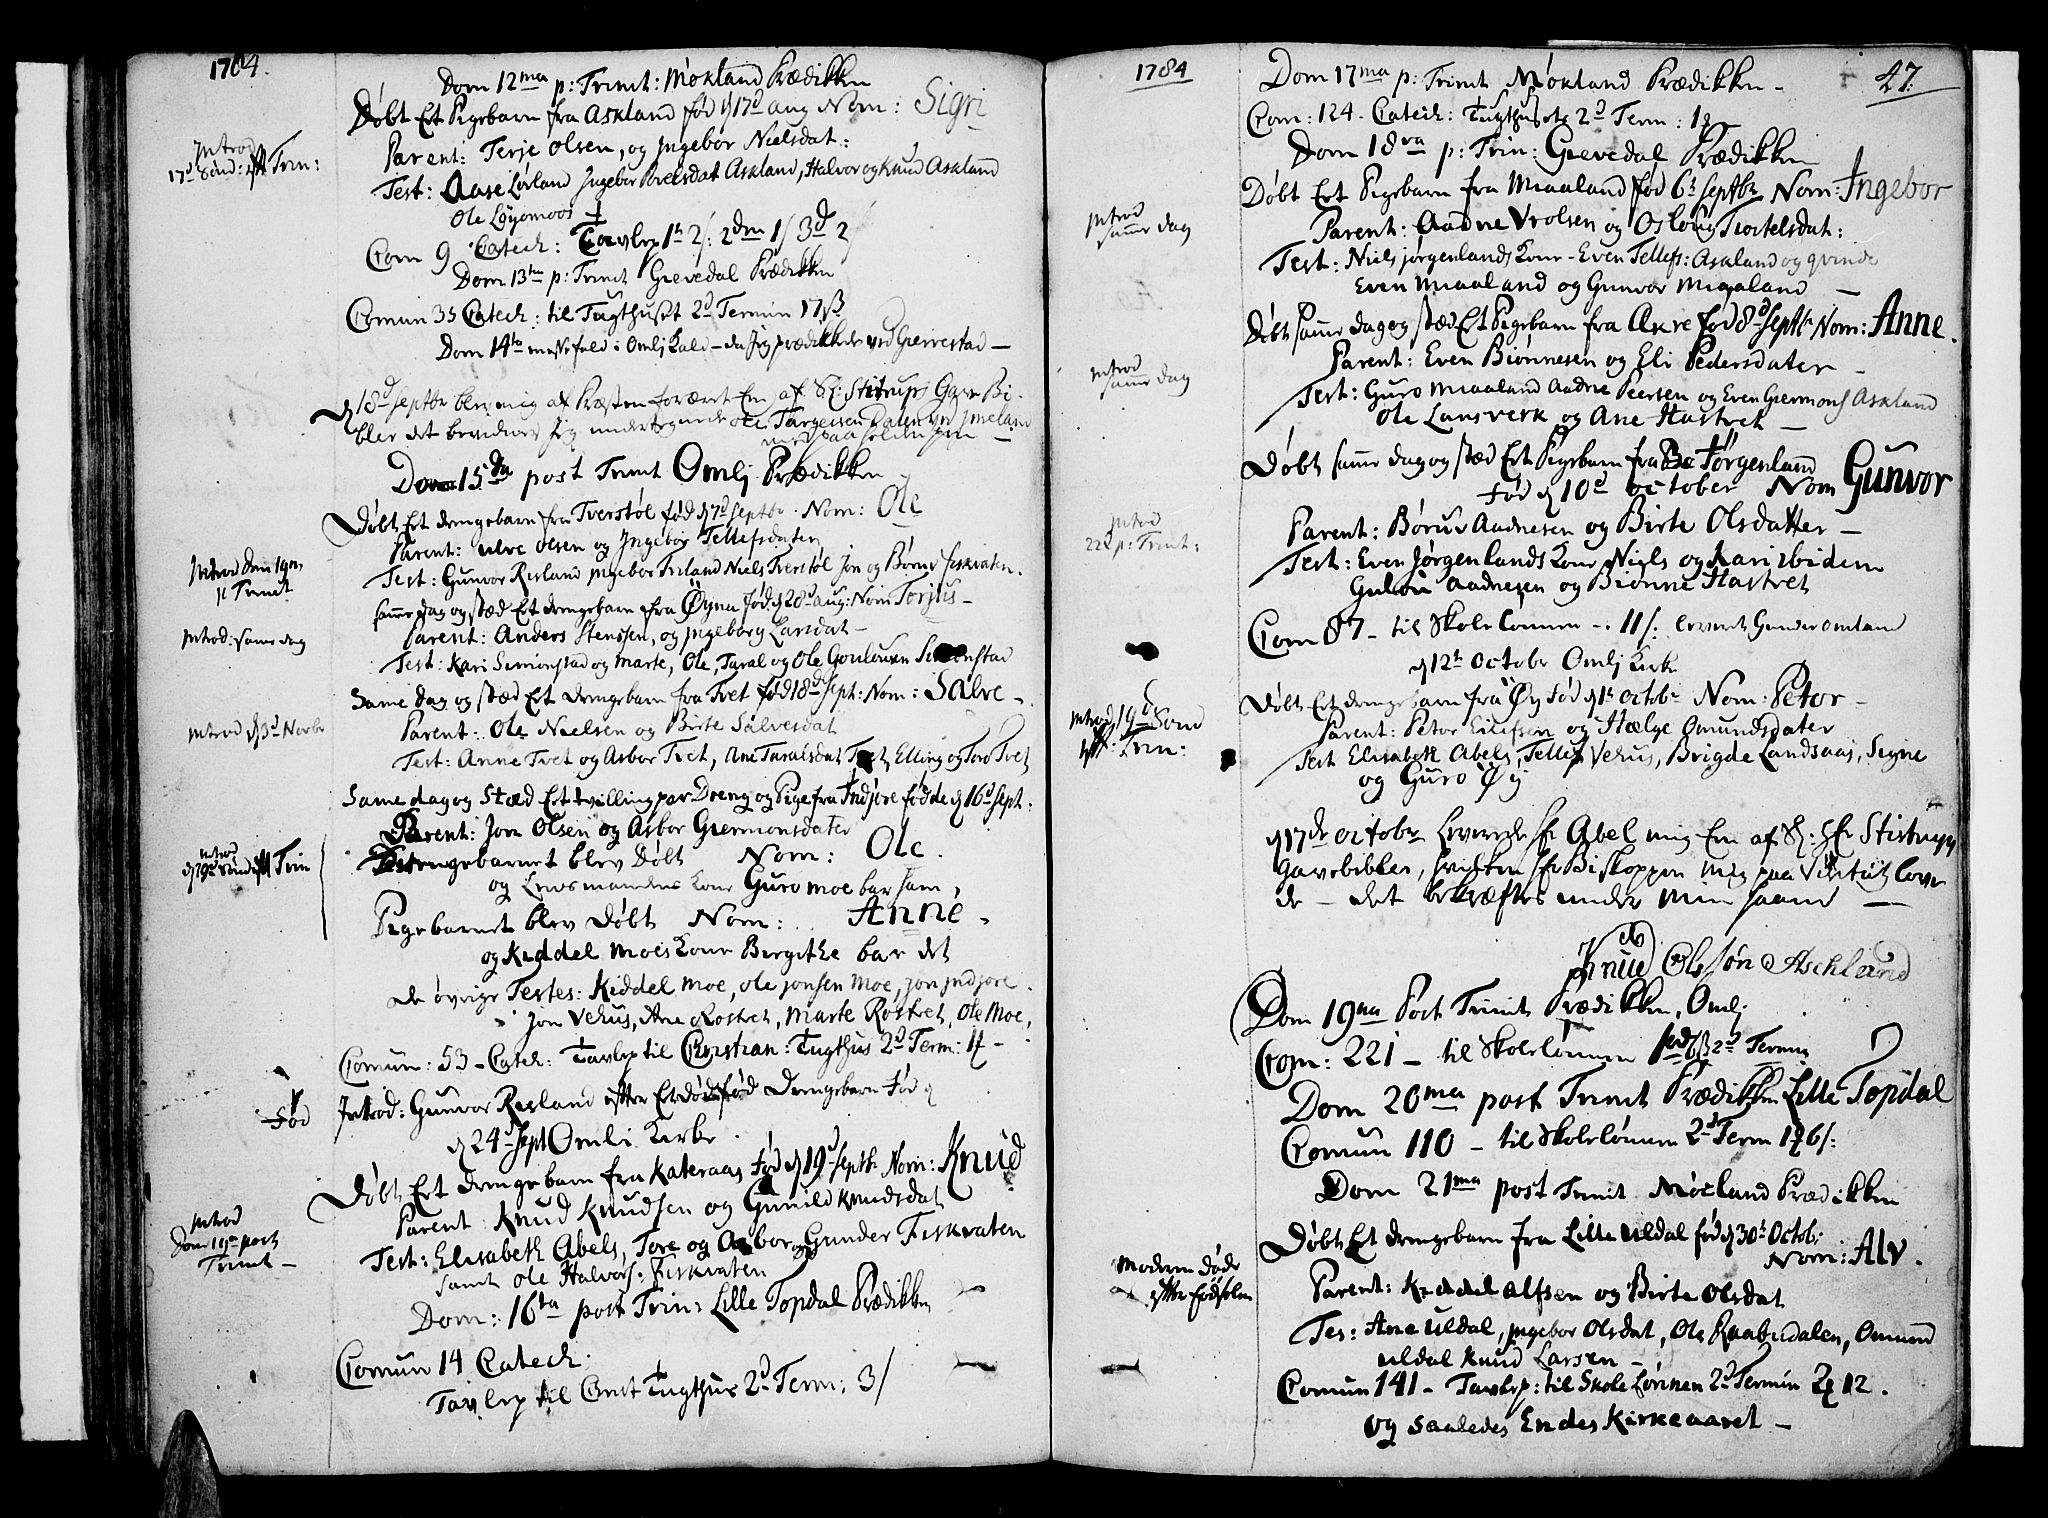 1784.
Dom 12ma p: Trinit: Møkland Prædikken
Døbt Et Pigebarn fra Askland fød d 17d aug Nom: Sigri
Introd
17d Sønd: eft Trin:
Parent: Terje Olsen, og Ingebor Nielsdat:
Test: Aase Lørland Ingebor Povelsdat Askland, Halvor og Knud Askland
Ole Løyomoos
Com 9 Catech: Tavlep 1h 2/: 2den 1/ 3d 2
Dom 13tia p: Trinit Grevedal Prædikken
Comun 35 Catech: til Tugthuset 2d Termin 17ß
Dom 14ta messefald i Omlj Kald - da Jeg prædikede ved Gierrestad -
d 18d septbr blev mig af Præsten foræret En af Sl: Stistrups Gave Bi-
bler det bevidner Jeg undertegnede Ole Targersen Dalen ved Imeland
med paaholden pen -
Dom 15da post Trinit Omlj Prædikken
Døbt Et drengebarn fra Tverstøl fød d 7d septbr. Nom: Ole
Parent: ulve olsen og Ingebor Tellefsdater
Introd Dom 19na
p Trinit
Test: Gunvor Risland Ingebor Friland Niels Tverstøl Jon og Børne Fiskvaten.
samme dag og stæd Et drengebarn fra Øyna fød d 20d aug: Nom Torjus -
Introd: samme dag
Parent: Anders Stensen, og Ingeborg Larsdat -
Test: Kari Simonstad og Marte, Ole, Taral og Ole Goulousen Simonstad
Same dag og stæd Et drengebarn fra Tvet fød 18d sept: Nom: Salve -
Introd d 3d Novbr
Parent: Ole Nielsen og Birte Salvesdat
Test: Anne Tvet og Asbor Tvet, Ane Taralsdat Tvet, Elling og Tore Tvet
Same dag og Stæd Et tvillingpar Dreng og Pige fra Indjore fødde d 16d sept:
Parent: Jon Olsen og Asbor Giermonsdater
Introd
d 19d Sønd eft Trin
Drengebarnet blev Døbt Nom: Ole.
og Lensmandens Kone Guro moe bar ham,
Pigebarnet blev Døbt Nom: Anne.
og Kiddel Moes Kone Birgithe bar det
De øvrige Testes: Kiddel Moe, Ole Jonsen Moe, Jon Indjore.
Jon Vehus, Ane Rostvet, Marte Rostvet, Ole Moe,
Comun: 53 - Catech: Tavlep til Christian: Tugthus 2d Term: 1
Fød
Introd: Gunvor Risland efter Et dødfød Drengebarn Fød d
d 24d Sept Omli Kirke.
Døbt Et drengebarn fra Kateraas fød d 19d septbr Nom: Knud
Parent: Knud Knudsen og Gunild Knudsdat
Introd
Dom 19na post
Trinit -
Test: Elisabeth Abels, Tore og Asbor og Gunder Fiskvaten
samt Ole Halvors: Fiskvaten
Dom: 16ta post Trin: Lille Topdal Prædikken
Comun 14 Catech:
Tavlep til Christ Tugthus 2d Term: 3/
1784
47.
Dom 17ma p: Trinit Møkland Prædikken -
Com: 124. Catech: Tugthuset 2d Term: 1
Dom 18va p: Trin: Grevedal Prædikken
Døbt Et Pigebarn fra Miaaland fød 6t septbr Nom: Ingebor
Introd
samme dag
Parent: Aadne Vrolsen og Oslaug Tiortelsdat:
Test: Niels Jørgenlands Kone - Even Tellefs: Askland og qvinde
Even Miaaland og Gunvor Miaaland -
Døbt samme dag og stæd Et Pigebarn fra Axre fød 8d septbr Nom: Anne.
Introd
samme dag
Parent: Even Biønnesen og Eli Pedersdater -
Test: Guro Miaaland Aadne Peersen og Even Giermons Askland
Ole Lansverk og Ane Hastvet -
Døbt samme dag og stæd Et Pigebarn fra Jørgenland
Fød d 10d october Nom Gunvor
Introd
22d p: Trinit:
Parent: Børuv Aadnesen og Birte Olsdatter -
Test: Even Jørgenlands Kone Niels og Kari ibidem
Gulou Aadnesen og Biønne Hastvet
Com 87 - til Skole lønnen -. 11/: leveret Gunder Omland
d 12t October Omlj Kirke
Døbt Et drengebarn fra Øy Fød d 1t octobr Nom: Petor -
Introd 19d Sønd
eft: Trin:
Parent: Petor Ellefsen og Hælge Omundsdater
Test Elisabeth Abels, Tellef Vehus, Brigde Landsaas, Signe
og Guro Øy
d 17de october Leverede Hr Abel mig En af Sl: Hr Stistrups
Gavebibler, hvilken Hr Biskoppen mig paa Visitatz love-
de - det bekræftes under min haand -
Knud Olssøn Aschland
Dom 19na Post Trinit Prædikken, Omlj
Com: 221 - til Skolelønnen 2d Termin
Dom 20ma post Trinit Prædikken Lille Topdal
Comun 110 - til Skolelønnen 2de Term 1 6/:
Dom 21ma post Trinit Møcland Prædikken
Døbt Et drengebarn fra Lille uldal fød d 30t Octob:
Nom: Alv.
Moderen døde
efter fødselen
Parent: Keddel Alfsen og Birte Olsdat
Tes: Ane Uldal, Ingebor Olsdat, Ole Raabudalen, Omund
uldal Knud Larsen -
Comun 141 - Tavlep: til Skole Lønnen 2d Termin 2 12.
og saaledes Endes Kirkeaaret -